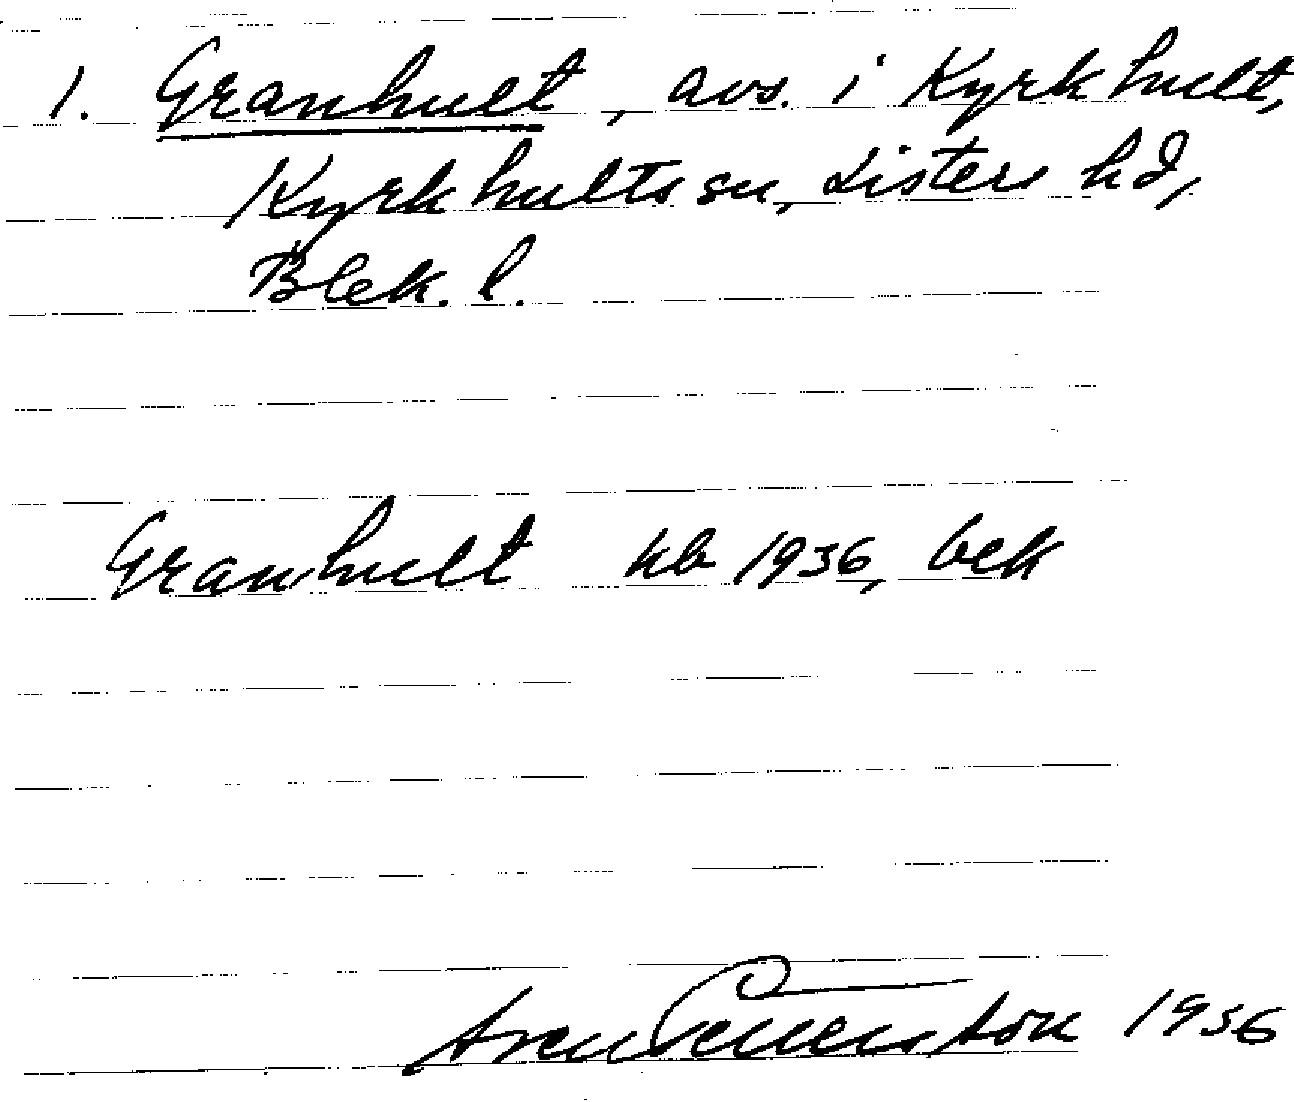 1. Granhult, avs. i Kyrkhult,
Kyrkhults sn, Listers hd,
Blek. l.
Granhult kb 1936, bek
Sven Pettersson 1936